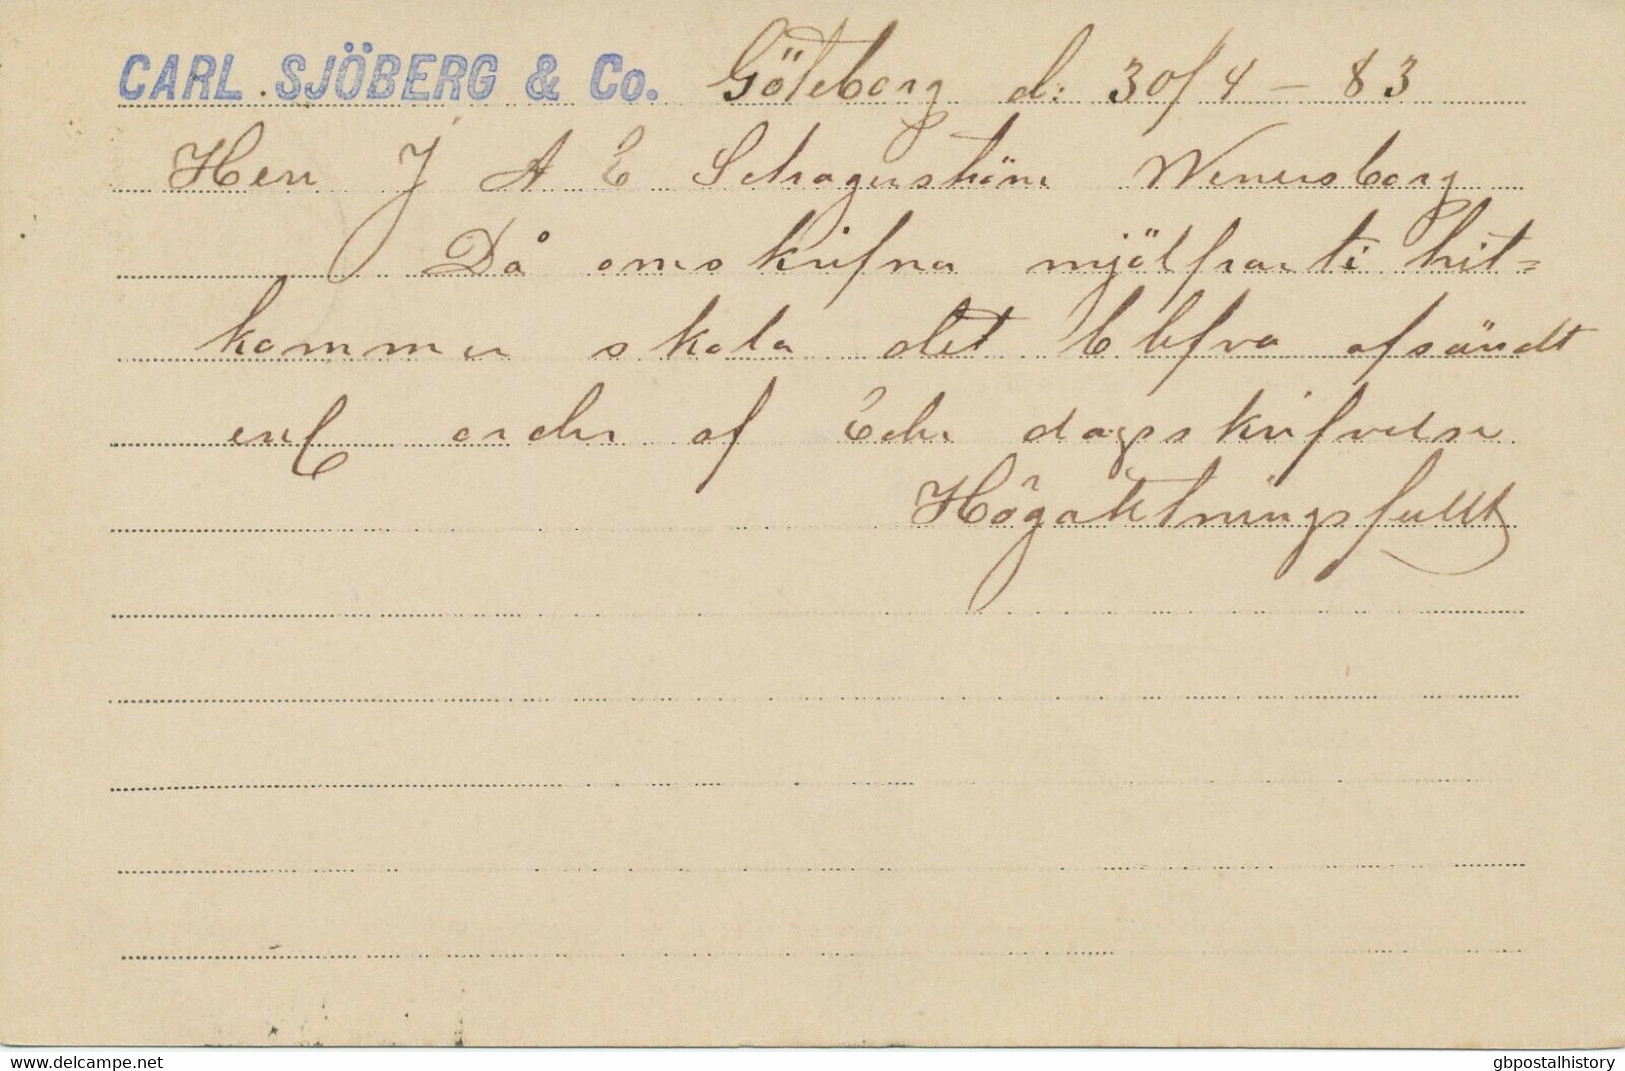 CARL SJÖBERG & Co. Göteborg d: 30/4 – 83
Herr J A E Schagerström Wenersborg
Då omskrifna mjölparti hit=
kommer skola det blifva afsändt
enl order af Eder dagsskrifvelse
Högaktningsfullt
www.delcampe.net
gbpostalhistory